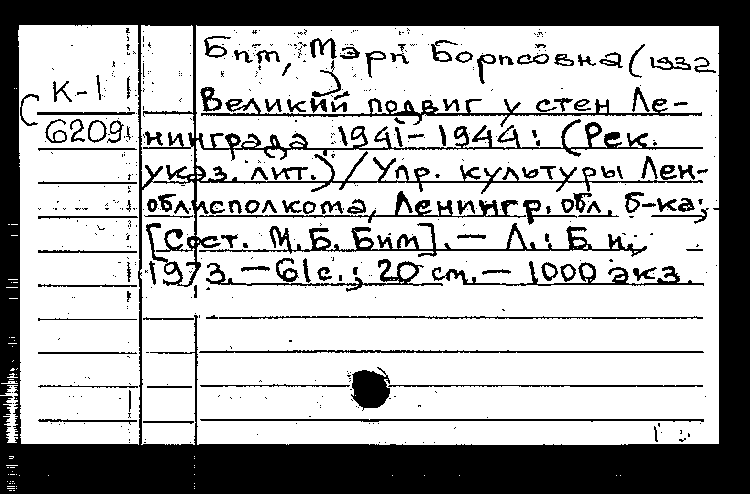 Бит, Мэри Борисовна (1932
К-1
Великий подвиг у стен Ле-
6209
нинграда, 1941-1944: (Рек.
указ. лит.) / Упр. культуры Лен-
облисполкома, Ленингр. обл. б-ка;
[Сост. М.Б. Бит]. — Л.: Б. и.,
1973. — 61с.; 20 см. — 1000 экз.